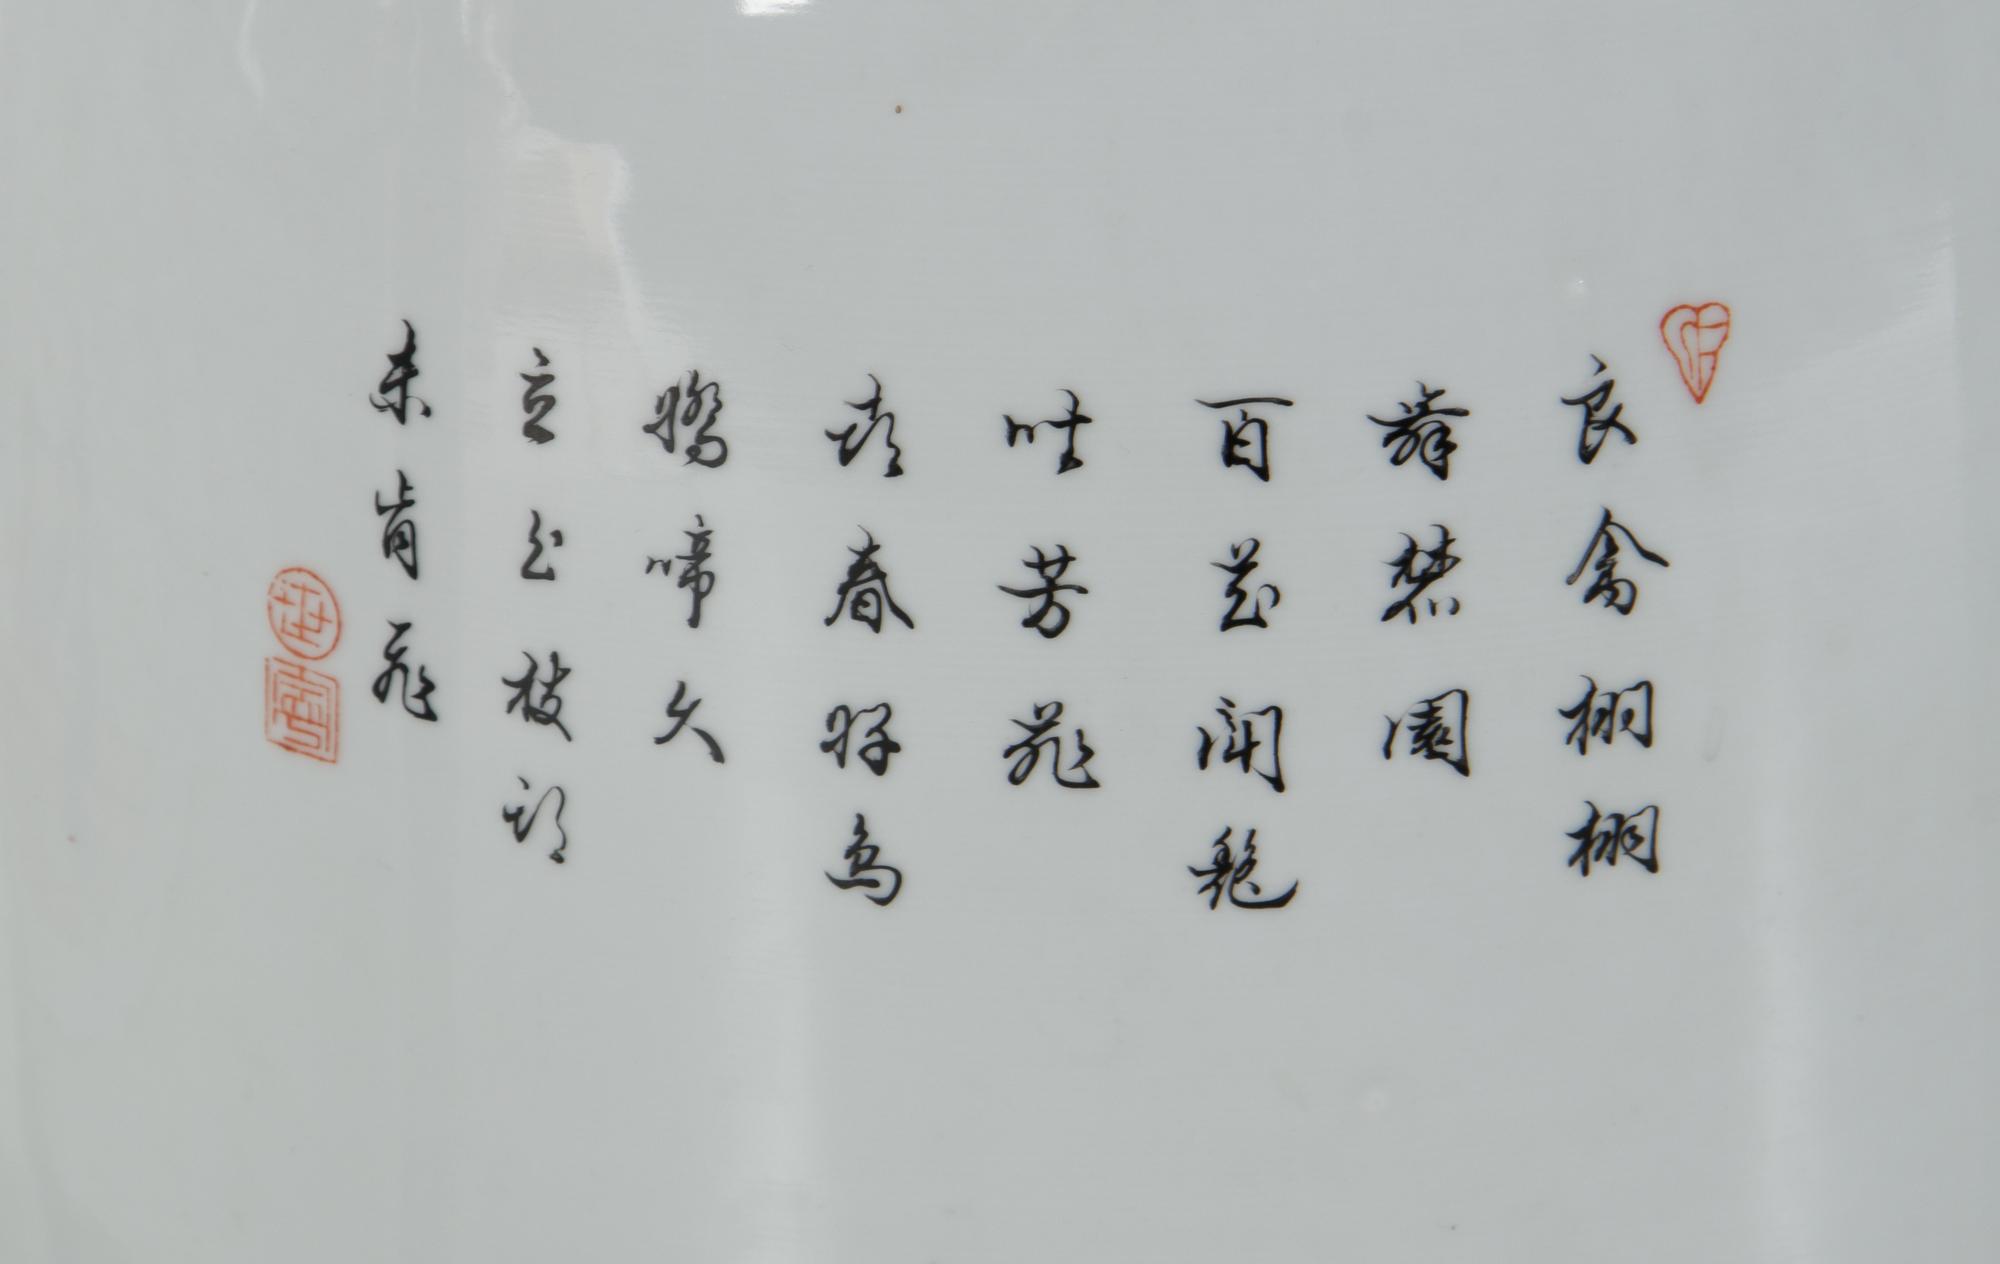 良禽栩栩
舞禁園
百花開艷
吐芳菲
春好鳥
嬌啼久
立枝頭
未肯飛